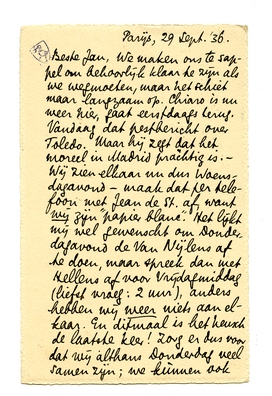 Parijs, 29 Sept. 36.
Beste Jan, We maken ons te sap-
pel om behoorlijk klaar te zijn als
we wegmoeten, maar het schiet
maar langzaam op. Chiaro is nu
weer hier, gaat eerstdaags terug.
Vandaag dat pestbericht over
Toledo. Maar hij zegt dat het
moreel in Madrid prachtig is.—
Wij zien elkaar nu dus Woens-
dagavond – maak dat per tele-
foon met Jean de St. af, want
wij zijn "papier blanc". Het lijkt
mij wel gewenscht om Donder-
dagavond de Van Nijlens af
te doen, maar spreek dan met
Hellens af voor Vrijdagmiddag
(liefst vroeg: 2 uur), anders
hebben wij weer niets aan el-
kaar. En ditmaal is het heusch
de laatste keer! Zorg er dus voor
dat wij althans Donderdag veel
samen zijn; we kunnen ook